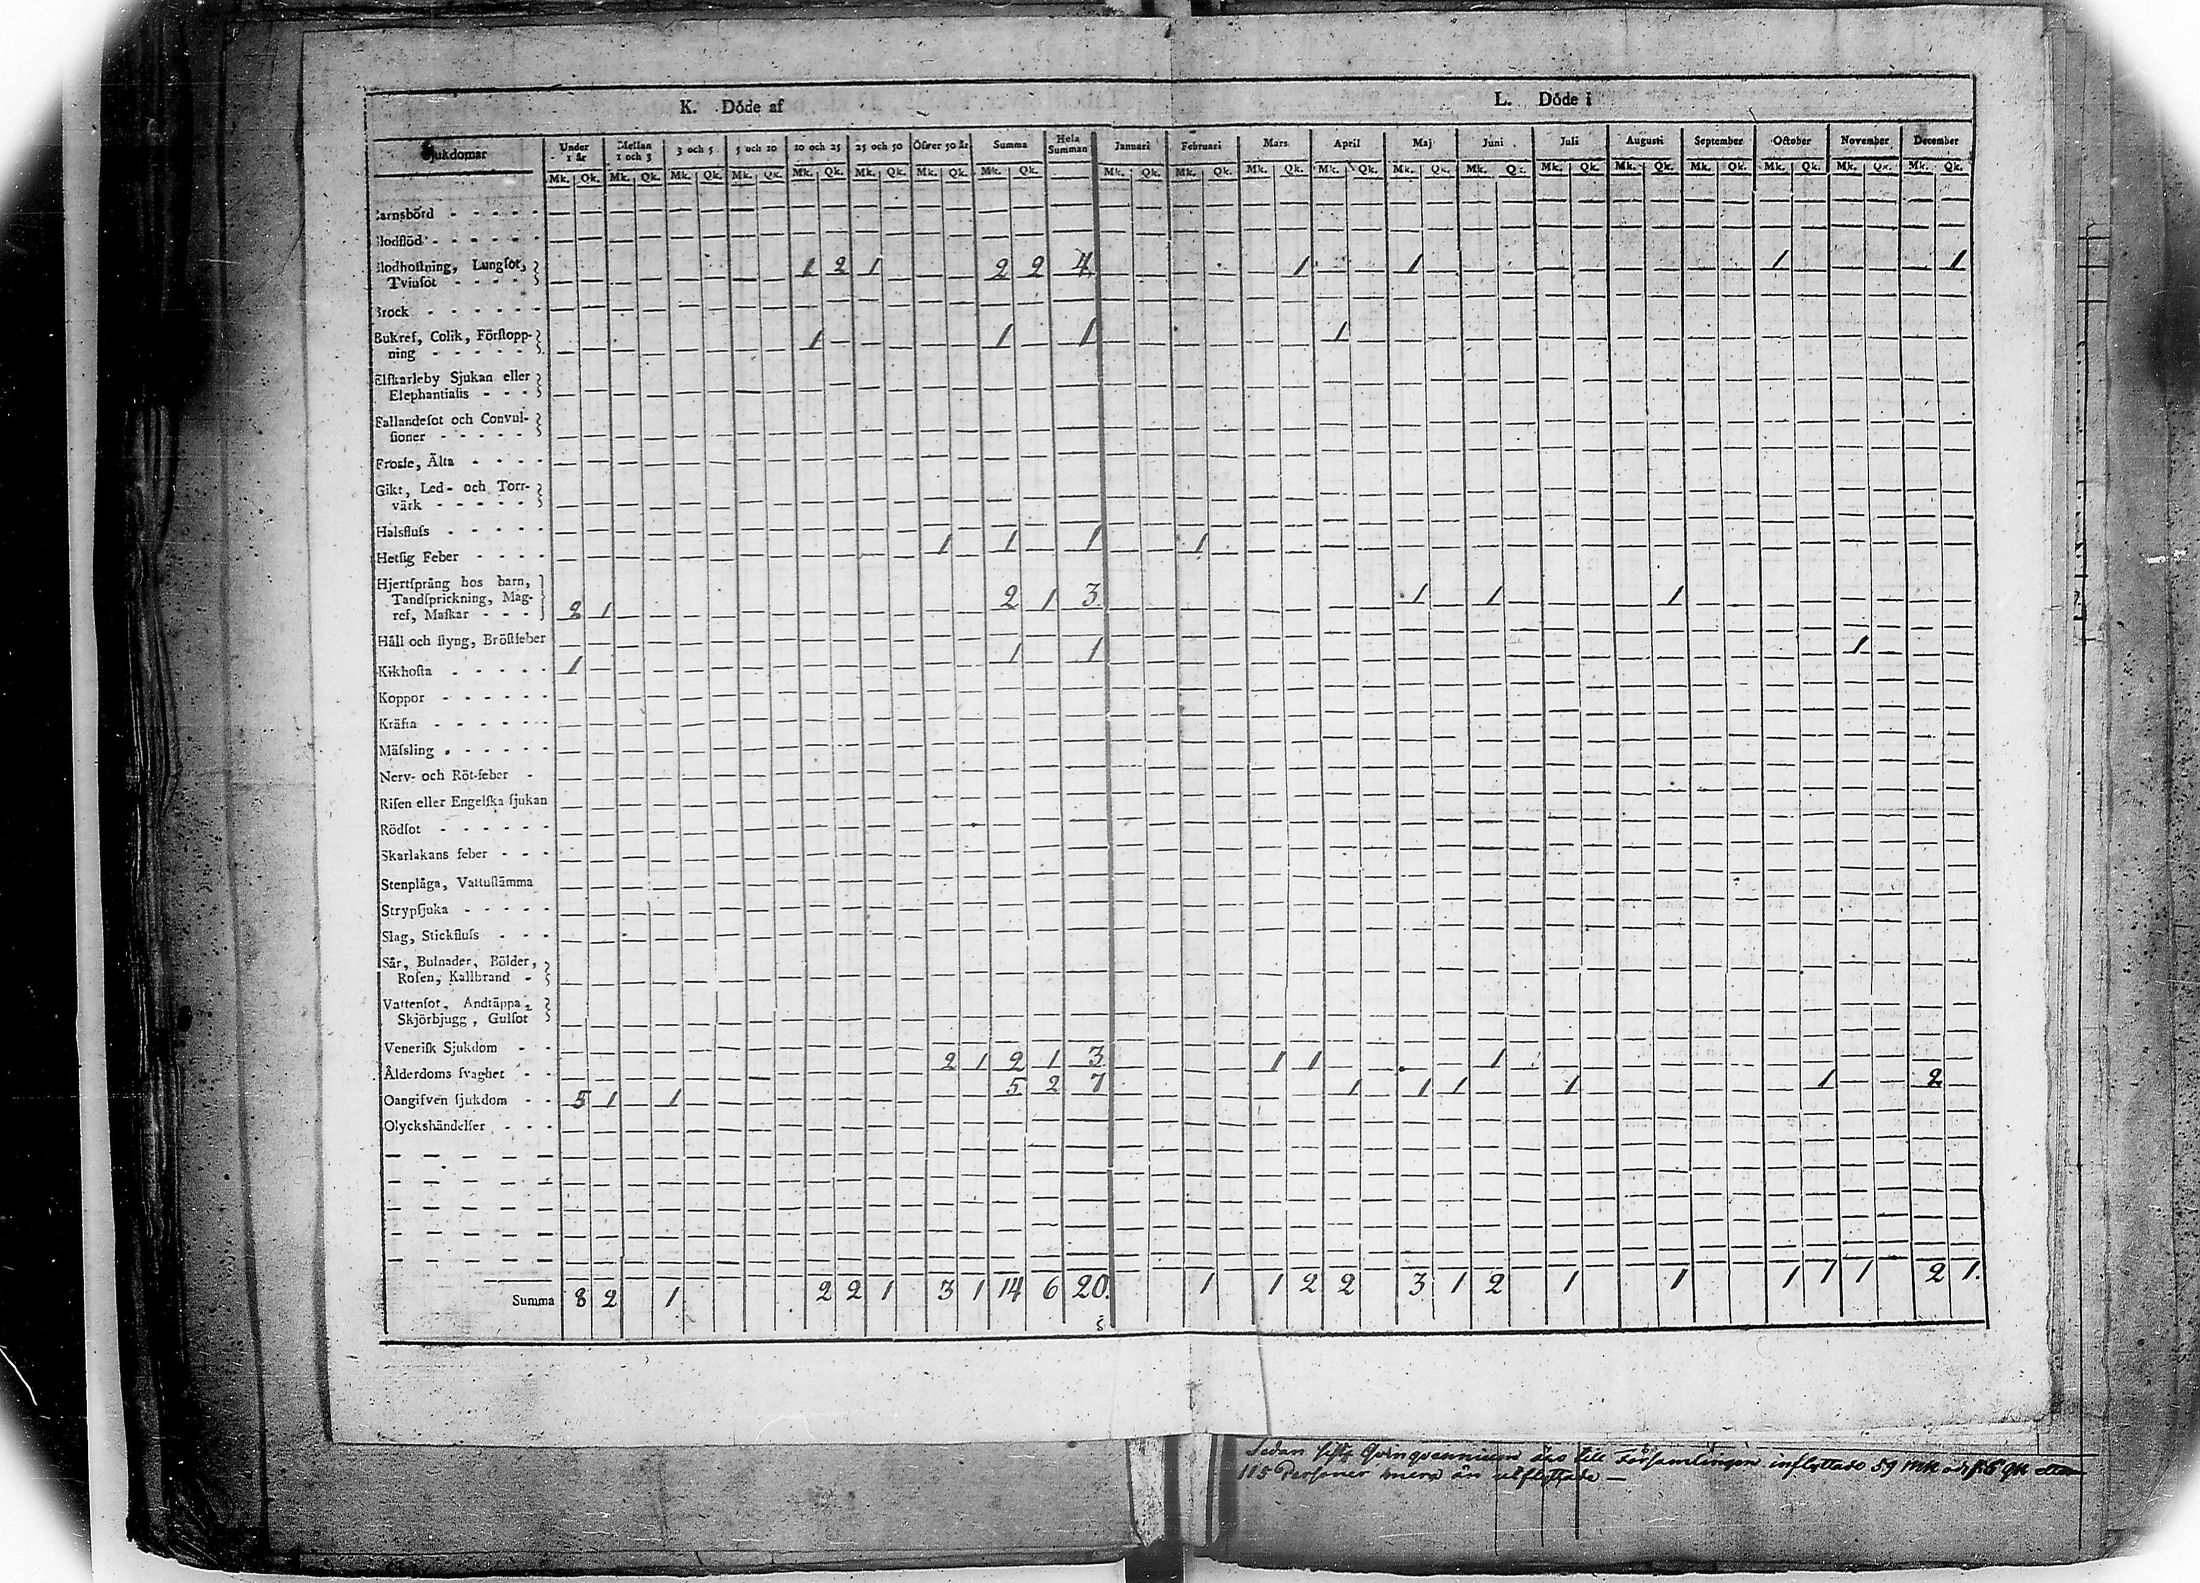 K. Döde af L. Döde i
Sjukdomar Under 1 år Mellan 1 och 3 3 och 5 5 och 10 10 och 25 25 och 50 Öfver 50 år Summa Hela Summan Januari Februari Mars April Maj Juni Juli Augusti September October November December
Mk. Qk. Mk. Qk. Mk. Qk. Mk. Qk. Mk. Qk. Mk. Qk. Mk. Qk. Mk. Qk. Mk. Qk. Mk. Qk. Mk. Qk. Mk. Qk. Mk. Qk. Mk. Qk. Mk. Qk. Mk. Qk. Mk. Qk. Mk. Qk. Mk. Qk. Mk. Qk.
arnsbörd - - - - -
lodflöd - - - - - -
lodhostning, Lungsot, 1 2 1 2 2 4 1 1 1 1
Tvinsot - - - -
Brock - - - - - -
Bukref, Colik, Förstopp- 1 1 1 1
ning - - - - -
Elfkarleby Sjukan eller
Elephantiasis - - -
Fallandesot och Convul-
sioner - - - - -
Frosse, Älta - - - -
Gikt, Led- och Torr-
värk - - - - -
Halsfluss - - - - -
Hetsig Feber - - - - 1 1 1 1
Hjertsprång hos barn,
Tandsprickning, Mag-
ref, Maskar - - - 2 1 2 1 3 1 1 1
Håll och styng, Bröstfeber
Kikhosta - - - - - 1 1 1 1
Koppor - - - - -
Kräfta - - - - - -
Mässling - - - - -
Nerv- och Röt-feber -
Risen eller Engelska sjukan
Rödsot - - - - - -
Skarlakans feber - - -
Stenplåga, Vattustämma
Strypsjuka - - - - -
Slag, Stickfluss - - -
Sår, Bulnader, Bölder,
Rosen, Kallbrand -
Vattensot, Andtäppa,
Skjörbjugg, Gulsot
Venerisk Sjukdom - -
Ålderdoms svaghet - - 2 1 2 1 3 1 1 1
Oangifven sjukdom - - 5 1 1 5 2 7 1 1 1 1 1 2
Olyckshändelser - - -
Summa 8 2 1 2 2 1 3 1 14 6 20. 1 1 2 2 3 1 2 1 1 1 1 1 2 1.
Sedan sista Qvinqvennium äro till Församlingen inflyttade 59 Mk och 56 Qk
115 Personer mera än utflyttade —